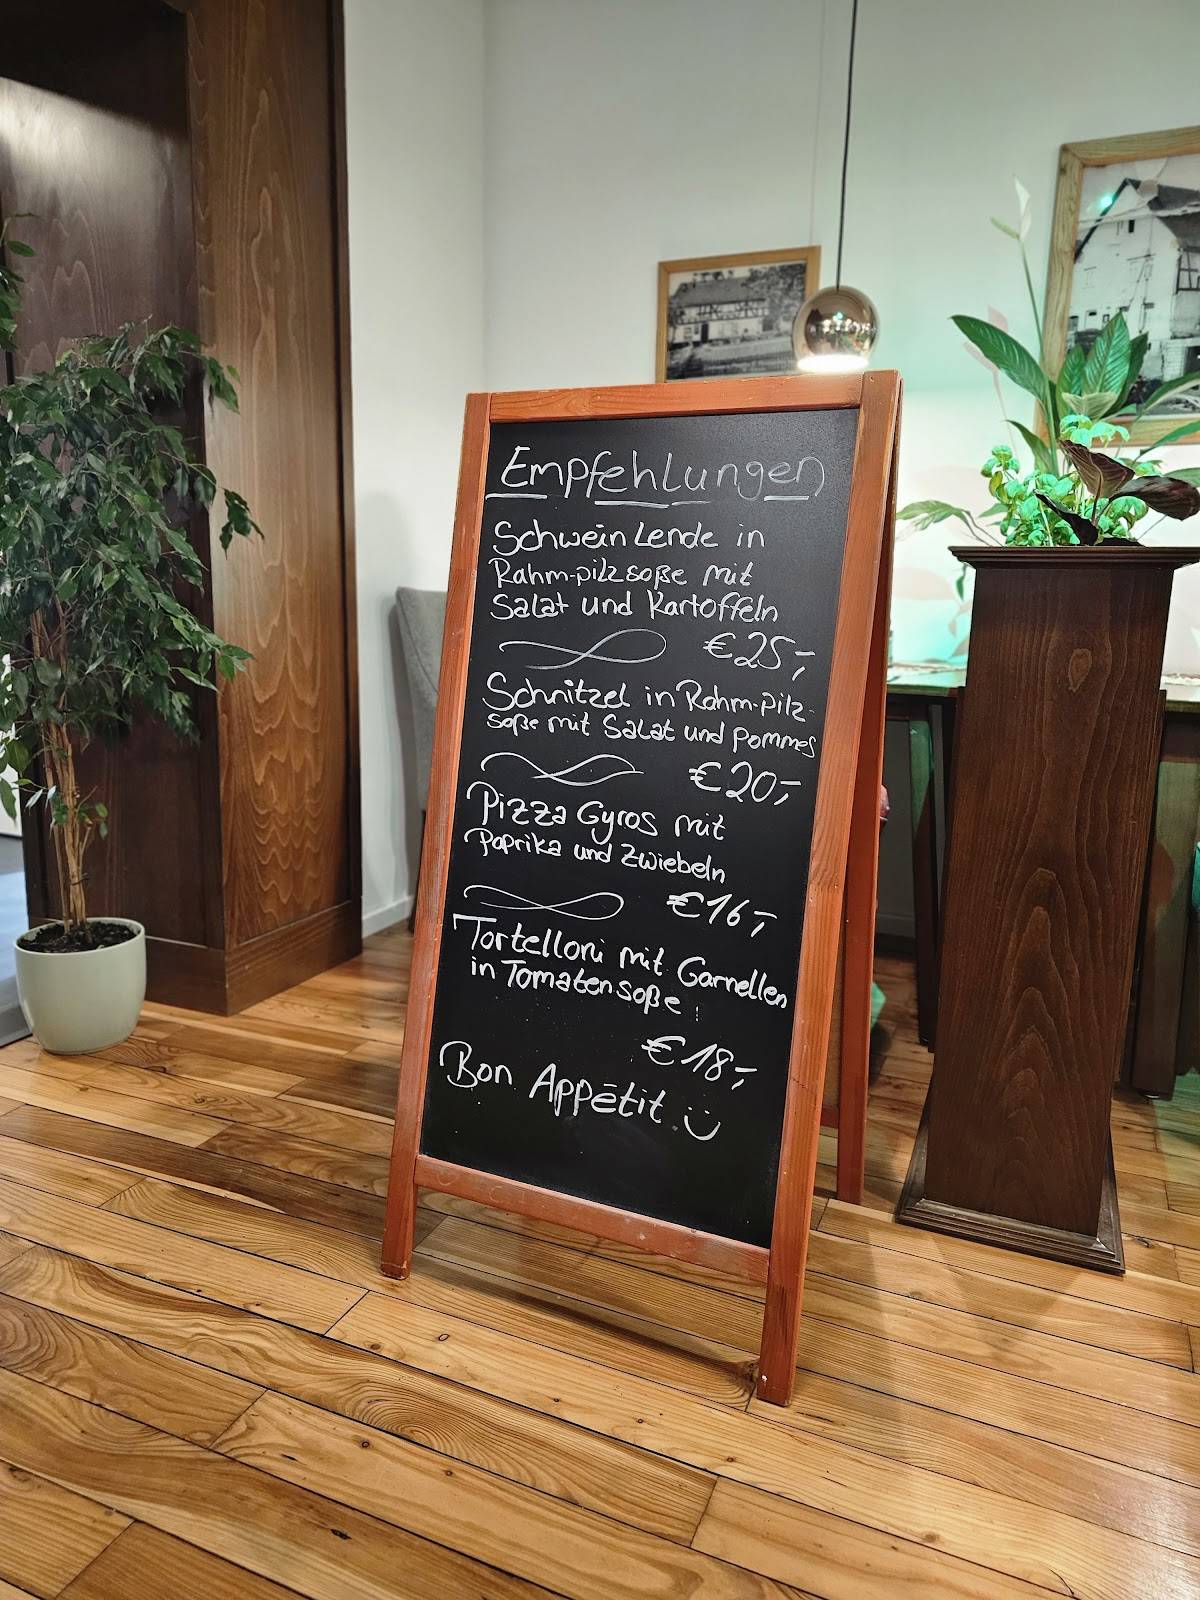 Empfehlungen
Schwein Lende in
Rahm-pilzsoße mit
Salat und Kartoffeln
€25,-
Schnitzel in Rahm-pilz-
soße mit Salat und pommes
€20,-
Pizza Gyros mit
Paprika und Zwiebeln
€16,-
Tortelloni mit Garnellen
in Tomatensoße!
€18,-
Bon Appētit.